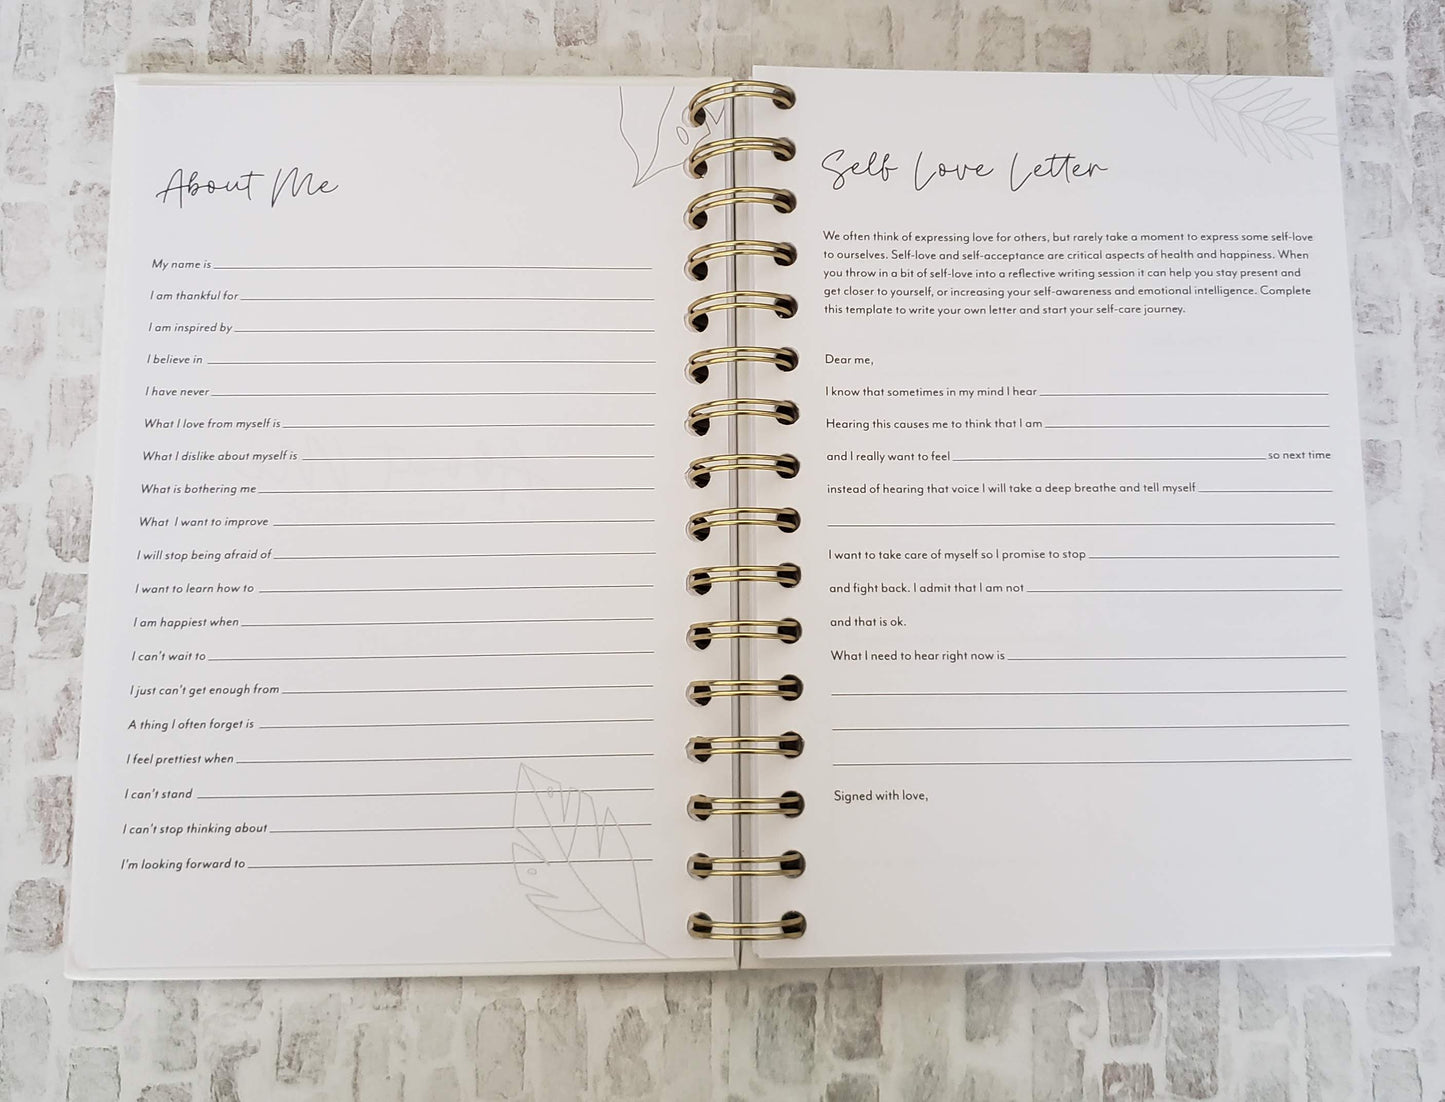 About Me
My name is
I am thankful for
I am inspired by
I believe in
I have never
What I love from myself is
What I dislike about myself is
What is bothering me
What I want to improve
I will stop being afraid of
I want to learn how to
I am happiest when
I can't wait to
I just can't get enough from
A thing I often forget is
I feel prettiest when
I can't stand
I can't stop thinking about
I'm looking forward to
Self Love Letter
We often think of expressing love for others, but rarely take a moment to express some self-love
to ourselves. Self-love and self-acceptance are critical aspects of health and happiness. When
you throw in a bit of self-love into a reflective writing session it can help you stay present and
get closer to yourself, or increasing your self-awareness and emotional intelligence. Complete
this template to write your own letter and start your self-care journey.
Dear me,
I know that sometimes in my mind I hear
Hearing this causes me to think that I am
and I really want to feel so next time
instead of hearing that voice I will take a deep breathe and tell myself
I want to take care of myself so I promise to stop
and fight back. I admit that I am not
and that is ok.
What I need to hear right now is
Signed with love,